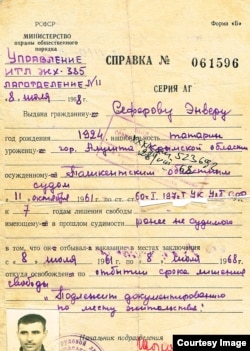 РСФСР
Форма «Б»
МИНИСТЕРСТВО
охраны общественного
порядка
СПРАВКА № 061596
Управление
ИТЛ ЖХ-385
Лаготделение N11
СЕРИЯ АГ
8 июля 1968 г.
Выдана гражданину Сеферову Энверу
год рождения 1924, национальность татарин
уроженцу гор. Алушта Крымской области
осужденному Ташкентским областным
судом
11 октября 1961 по ст. ст. УК Уз ССР
к 7 годам лишения свободы
имеющему в прошлом судимости ранее не судимого
в том, что он отбывал наказание в местах заключения
с 8 июля 1961 г. по 8 июля 1968 г.
откуда освобожден по отбытии срока лишения
свободы
Подлежит документированию
по месту жительства
Начальник подразделения
Courtesy Image